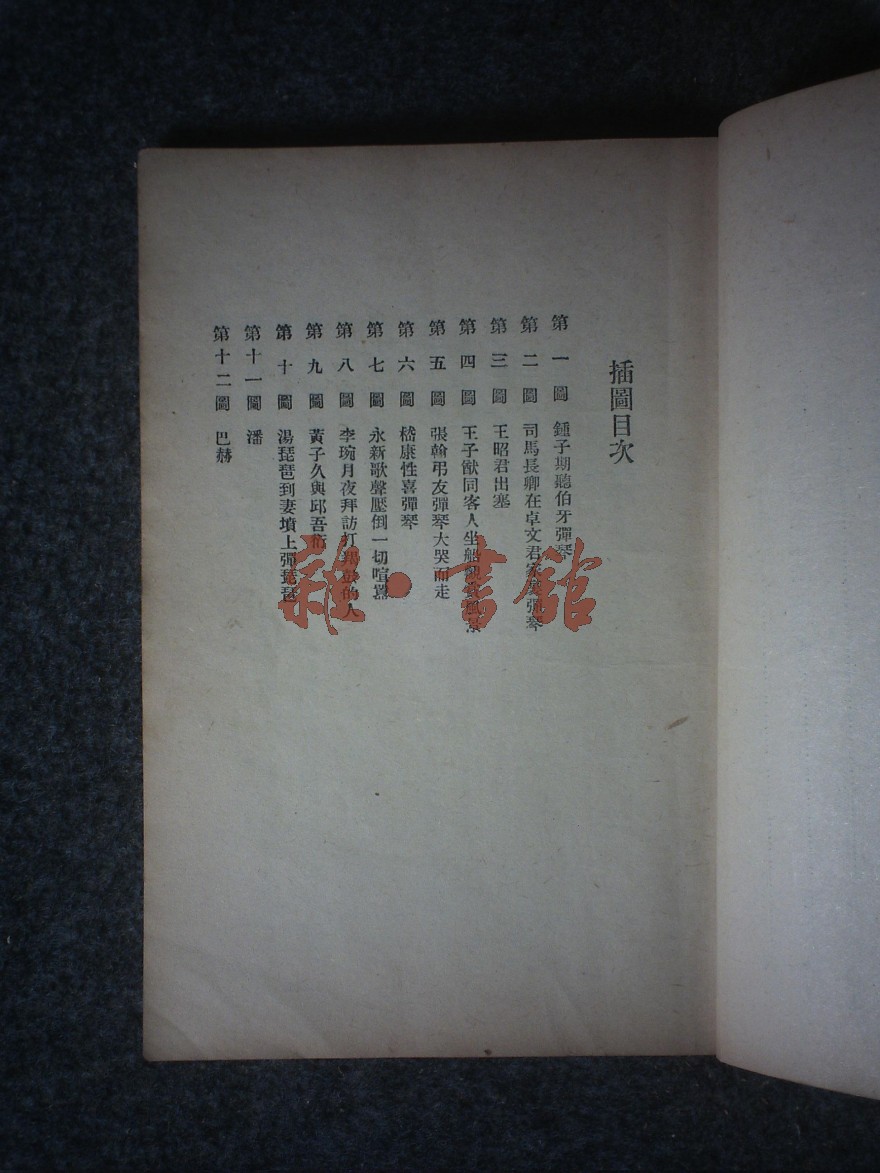 插圖目次
第一圖 鍾子期聽伯牙彈琴
第二圖 司馬長卿在卓文君家裏彈琴
第三圖 王昭君出塞
第四圖 王子猷同客人坐船觀賞風景
第五圖 張翰弔友彈琴大哭而走
第六圖 嵇康性喜彈琴
第七圖 永新歌聲壓倒一切喧囂
第八圖 李琬月夜拜訪打羯鼓的人
第九圖 黃子久與邱吾衍
第十圖 湯琵琶到妻墳上彈琵琶
第十一圖 潘
第十二圖 巴赫
雜·書館